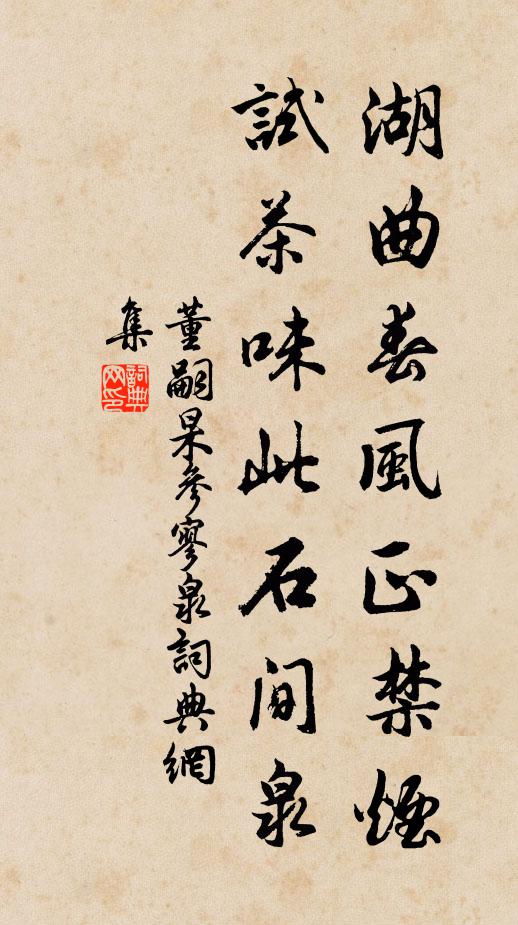 湖曲春風正禁煙
試茶味此石間泉
董嗣杲參寥泉詞典網
集
詞典網印